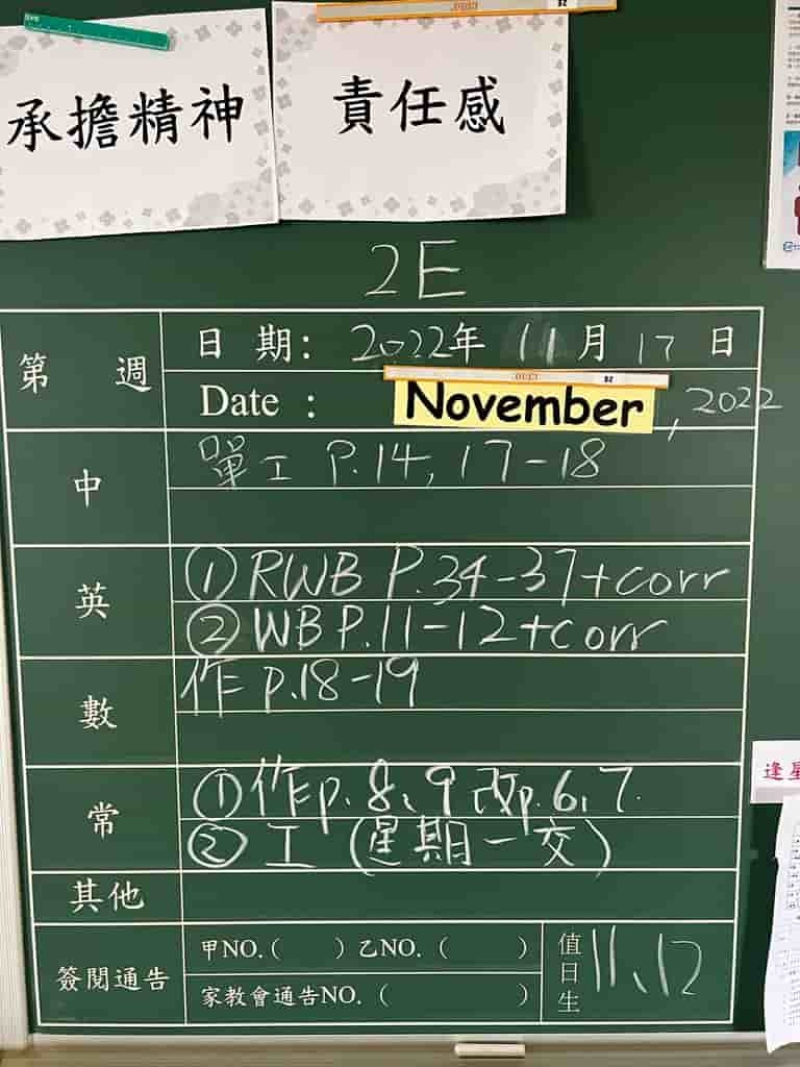 承擔精神
責任感
2E
第 週
日 期: 2022年 11月 17 日
Date : November, 2022
中
單工 P.14, 17-18
英
① RWB P.34-37+corr
② WB P.11-12+corr
數
作 p.18-19
常
① 作p. 8、9 改p. 6、7.
② 工 (星期一交)
其他
簽閱通告
甲NO.( ) 乙NO. ( )
家教會通告NO. ( )
值日生 11、12
逢星